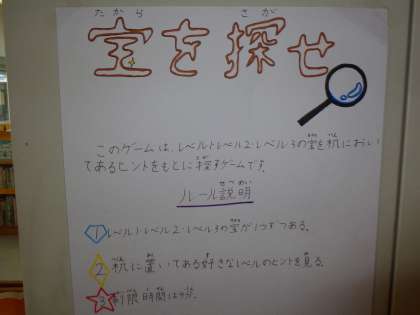 宝を探せ
このゲームは、レベル1・レベル2・レベル3の宝を机におい
てあるヒントをもとに探すゲームです。
ルール説明
1 レベル1・レベル2・レベル3の宝が1つずつある。
2 机に置いてある好きなレベルのヒントを見る。
3 制限時間は 分。